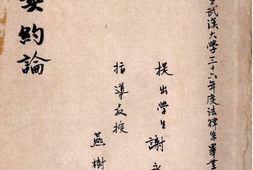 武漢大學三十六年度法律系畢業
提出學生 謝
指導教授 燕樹
要約論